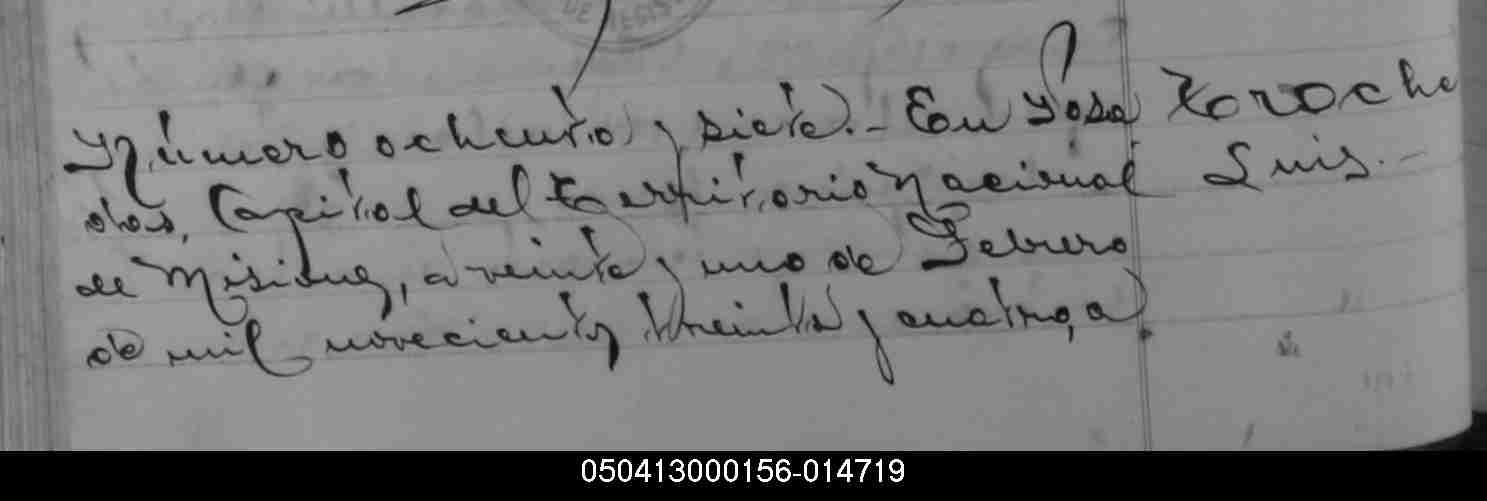 DE REGIS
Número ochenta y siete.- En Posa
das, Capital del Territorio Nacional
de Misiones, a veinte y uno de Febrero
de mil novecientos treinta y cuatro, a
Luis.-
050413000156-014719